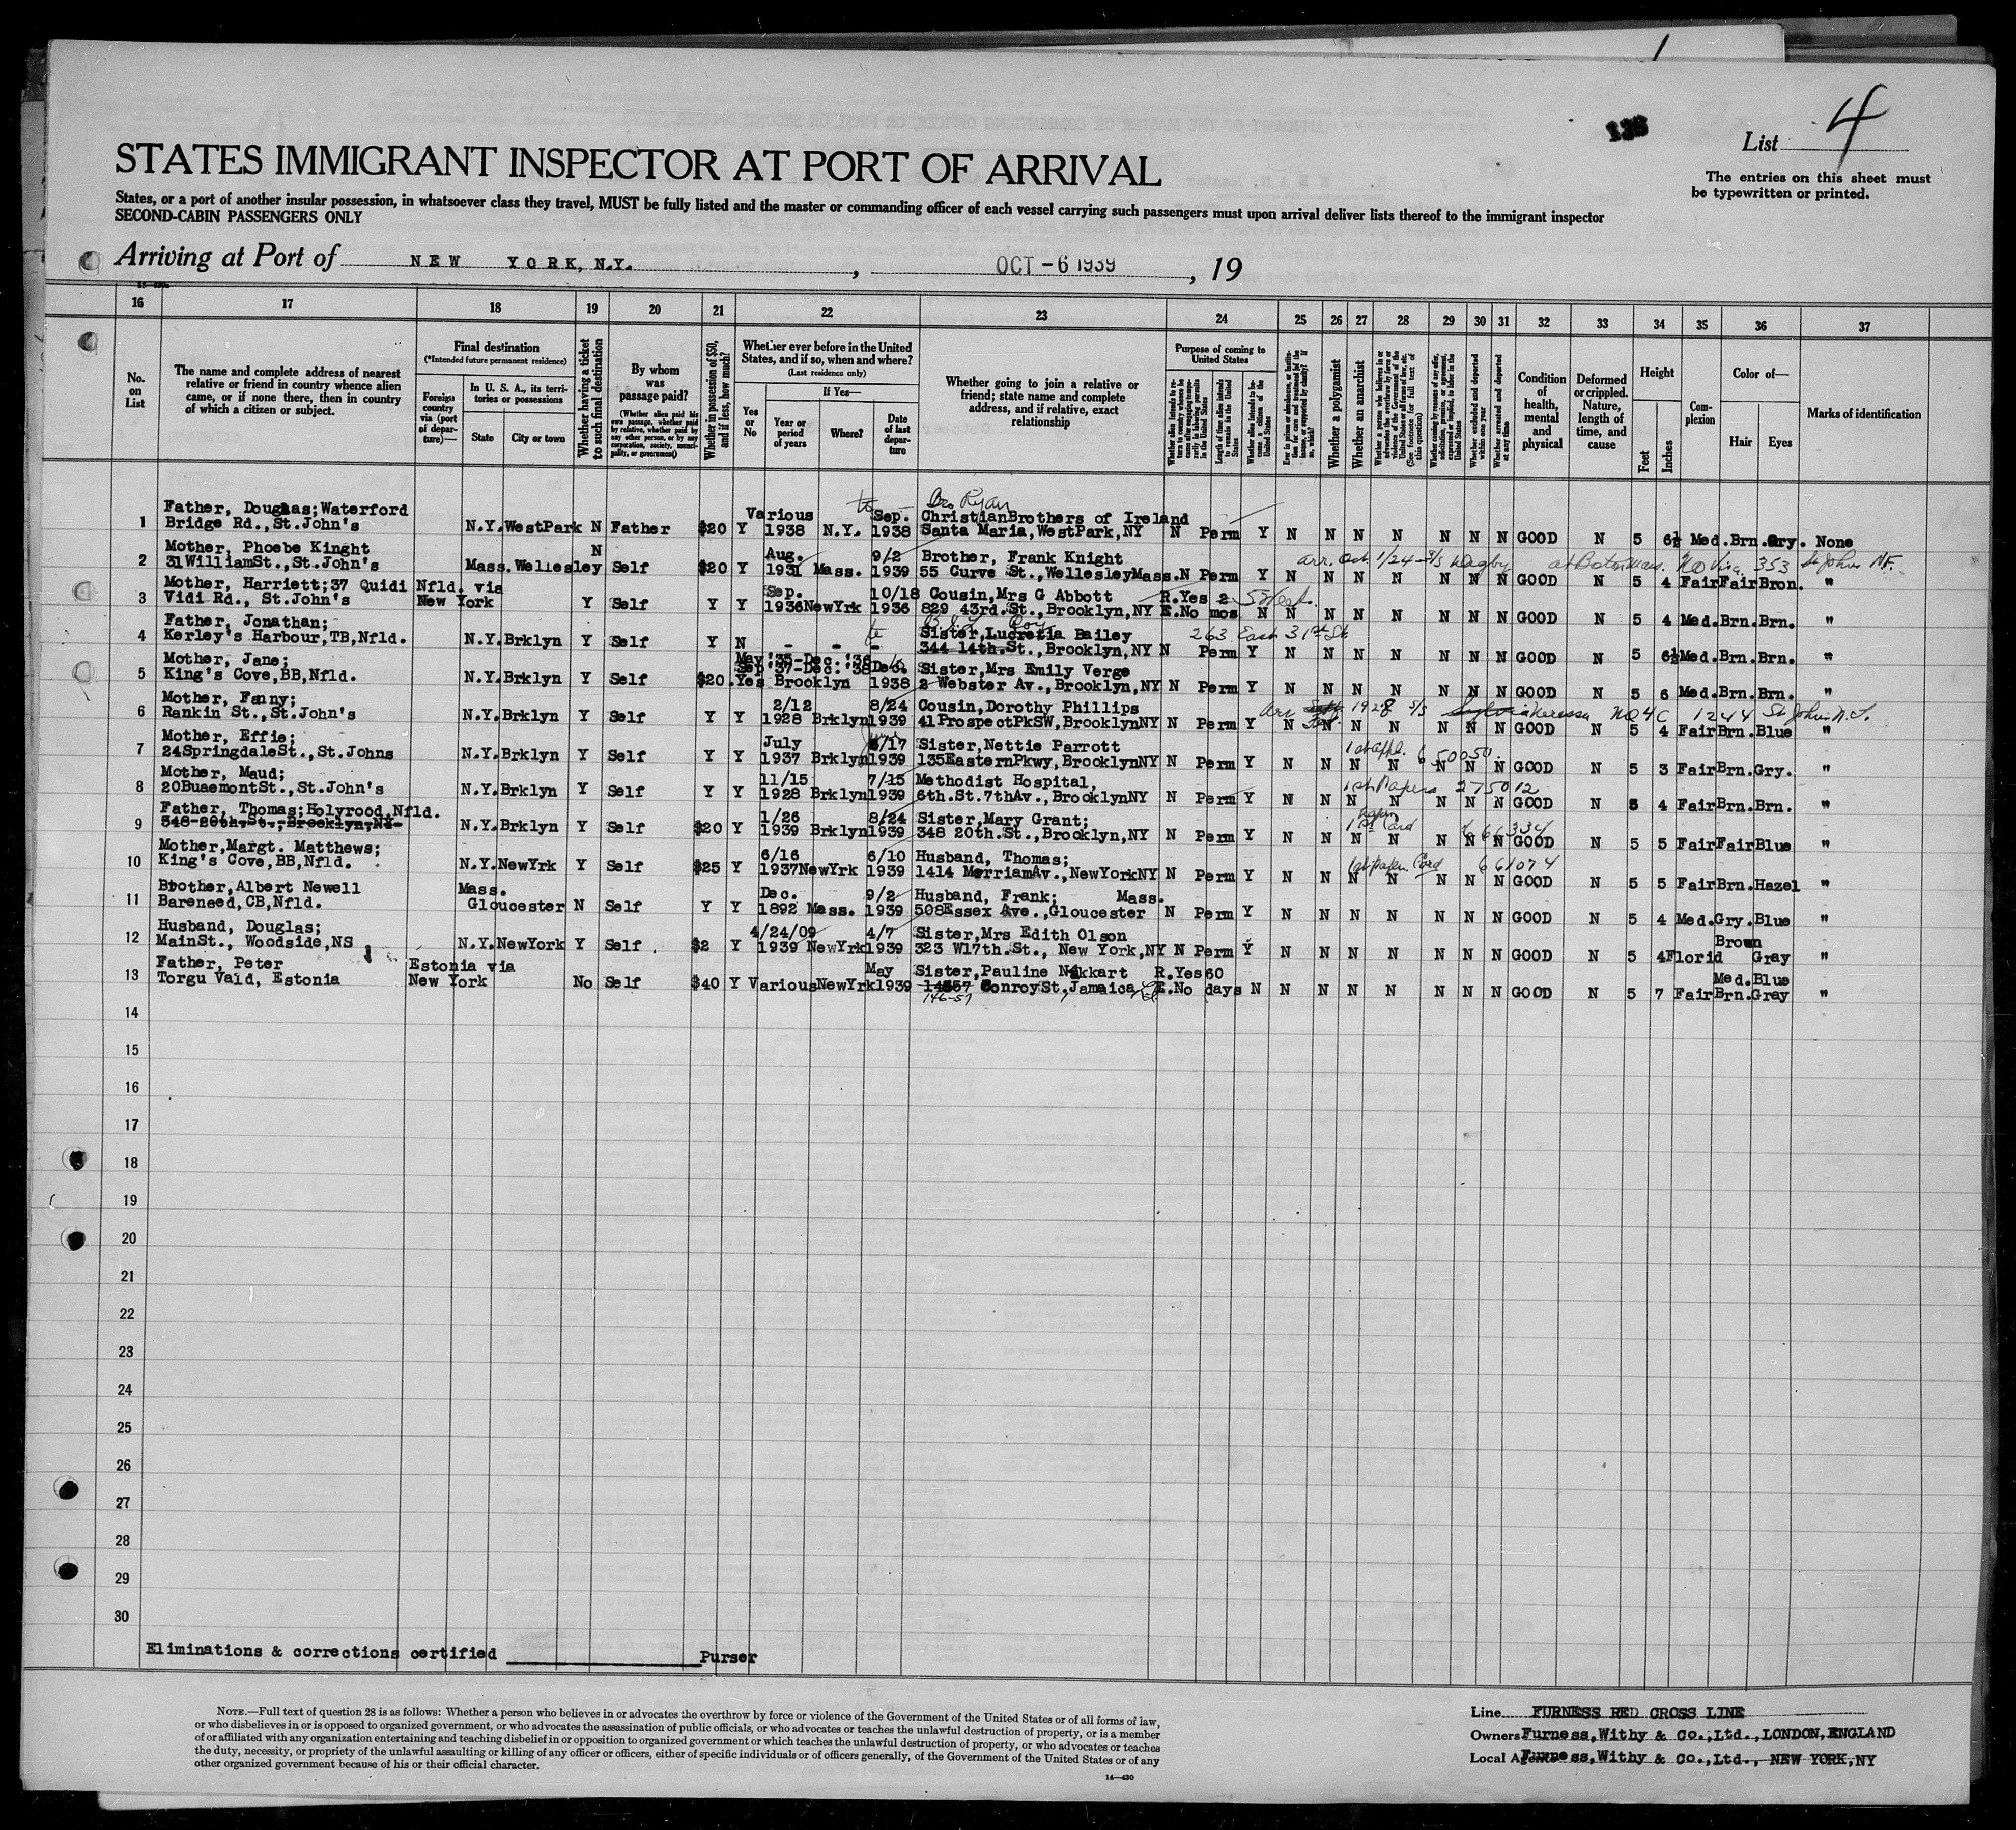 138
List 4
STATES IMMIGRANT INSPECTOR AT PORT OF ARRIVAL
The entries on this sheet must
be typewritten or printed.
States, or a port of another insular possession, in whatsoever class they travel, MUST be fully listed and the master or commanding officer of each vessel carrying such passengers must upon arrival deliver lists thereof to the immigrant inspector
SECOND-CABIN PASSENGERS ONLY
Arriving at Port of NEW YORK, N.Y., OCT -6 1939, 19
16 17 18 19 20 21 22 23 24 25 26 27 28 29 30 31 32 33 34 35 36 37
No. on List
The name and complete address of nearest relative or friend in country whence alien came, or if none there, then in country of which a citizen or subject.
Final destination
(*Intended future permanent residence)
Foreign country via (port of departure)—
In U. S. A., its territories or possessions
State
City or town
Whether having a ticket to such final destination
By whom was passage paid?
(Whether alien paid his own passage, whether paid by relative, whether paid by any other person, or by any corporation, society, municipality, or government)
Whether in possession of $50, and if less, how much?
Whether ever before in the United States, and if so, when and where?
(Last residence only)
Yes or No
If Yes—
Year or period of years
Where?
Date of last departure
Whether going to join a relative or friend; state name and complete address, and if relative, exact relationship
Purpose of coming to United States
Length of time alien intends to remain in the United States
Whether alien intends to become a citizen of the United States
Whether a polygamist
Whether an anarchist
Whether excluded and deported within one year
Whether arrested and deported at any time
Condition of health, mental and physical
Deformed or crippled. Nature, length of time, and cause
Height
Feet
Inches
Complexion
Color of—
Hair
Eyes
Marks of identification
Father, Douglas; Waterford Various to Sep. Bro Ryan Christian Brothers of Ireland
1 Bridge Rd., St. John's N.Y. WestPark N Father $20 Y 1938 N.Y. 1938 Santa Maria, WestPark, NY N Perm Y N N N N N N N GOOD N 5 6½ Med. Brn. Gry. None
Mother, Phoebe Kinght N Aug. 9/2 Brother, Frank Knight arr. Oct 1/24 S/S Digby at Boston Mass. 353 St John NF.
2 31 William St., St. John's Mass. Wellesley Self $20 Y 1931 Mass. 1939 55 Curve St., Wellesley Mass. N Perm Y N N N N N N N GOOD N 5 4 Fair Fair Bron. "
Mother, Harriett; 37 Quidi Nfld. via Sep. 10/18 Cousin, Mrs G Abbott R. Yes 2
3 Vidi Rd., St. John's New York Y Self Y Y 1936 NewYrk 1936 829 43rd. St., Brooklyn, NY E. No mos N N N N N N N N GOOD N 5 4 Med. Brn. Brn. "
Father, Jonathan; Sister, Lucretia Bailey 263 East 31st St
4 Kerley's Harbour, TB, Nfld. N.Y. Brklyn Y Self Y N - - - 344 14th. St., Brooklyn, NY N Perm Y N N N N N N N GOOD N 5 6½ Med. Brn. Brn. "
Mother, Jane; May '35-Dec. '36 Sep '37-Dec. '38 Dec. Sister, Mrs Emily Verge
5 King's Cove, BB, Nfld. N.Y. Brklyn Y Self $20. Yes Brooklyn 1938 2 Webster Av., Brooklyn, NY N Perm Y N N N N N N N GOOD N 5 6 Med. Brn. Brn. "
Mother, Fanny; 2/12 8/24 Cousin, Dorothy Phillips arr 1928 S/S Nerissa NO 4C 1244 St Johns N.F.
6 Rankin St., St. John's N.Y. Brklyn Y Self Y Y 1928 Brklyn 1939 41 ProspectPkSW, BrooklynNY N Perm Y N N N N N N N GOOD N 5 4 Fair Brn. Blue "
Mother, Effie; July 6/17 Sister, Nettie Parrott 1st appl. 650050
7 24 Springdale St., St. Johns N.Y. Brklyn Y Self Y Y 1937 Brklyn 1939 135 Eastern Pkwy, BrooklynNY N Perm Y N N N N N N N GOOD N 5 3 Fair Brn. Gry. "
Mother, Maud; 11/15 7/15 Methodist Hospital, 1st Papers 275012
8 20 Buaemont St., St. John's N.Y. Brklyn Y Self Y Y 1928 Brklyn 1939 6th. St. 7th Av., BrooklynNY N Perm Y N N N N N N N GOOD N 5 4 Fair Brn. Brn. "
Father, Thomas; Holyrood, Nfld. 1/26 8/24 Sister, Mary Grant; 1st paper Card
9 548-20th. St., Brooklyn, NY N.Y. Brklyn Y Self $20 Y 1939 Brklyn 1939 348 20th. St., Brooklyn, NY N Perm Y N N N N N N N GOOD N 5 5 Fair Fair Blue "
Mother, Margt. Matthews; 6/16 6/10 Husband, Thomas; 1st paper Card 661074
10 King's Cove, BB, Nfld. N.Y. NewYrk Y Self $25 Y 1937 NewYrk 1939 1414 MerriamAv., NewYorkNY N Perm Y N N N N N N N GOOD N 5 5 Fair Brn. Hazel "
Brother, Albert Newell Mass. Dec. 9/2 Husband, Frank; Mass.
11 Bareneed, CB, Nfld. Gloucester N Self Y Y 1892 Mass. 1939 508 Essex Ave., Gloucester N Perm Y N N N N N N N GOOD N 5 4 Med. Gry. Blue "
Husband, Douglas; 4/24/09 4/7 Sister, Mrs Edith Olson Brown
12 Main St., Woodside, NS N.Y. NewYork Y Self $2 Y 1939 NewYrk 1939 323 W17th. St., New York, NY N Perm Y N N N N N N N GOOD N 5 4 Florid Gray "
Father, Peter Estonia via May Sister, Pauline Nikkart R. Yes 60 Med. Blue
13 Torgu Vaid, Estonia New York No Self $40 Y Various NewYrk 1939 14657 Conroy St, Jamaica E. No days N N N N N N N N GOOD N 5 7 Fair Brn. Gray "
146-57
14
15
16
17
18
19
20
21
22
23
24
25
26
27
28
29
30
Eliminations & corrections certified Purser
NOTE.—Full text of question 28 is as follows: Whether a person who believes in or advocates the overthrow by force or violence of the Government of the United States or of all forms of law,
or who disbelieves in or is opposed to organized government, or who advocates the assassination of public officials, or who advocates or teaches the unlawful destruction of property, or is a member
of or affiliated with any organization entertaining and teaching disbelief in or opposition to organized government or which teaches the unlawful destruction of property, or who advocates or teaches
the duty, necessity, or propriety of the unlawful assaulting or killing of any officer or officers, either of specific individuals or of officers generally, of the Government of the United States or of any
other organized government because of his or their official character.
14—430
Line FURNESS RED CROSS LINE
Owners Furness, Withy & Co., Ltd., LONDON, ENGLAND
Local Agents Furness, Withy & Co., Ltd., NEW YORK, NY